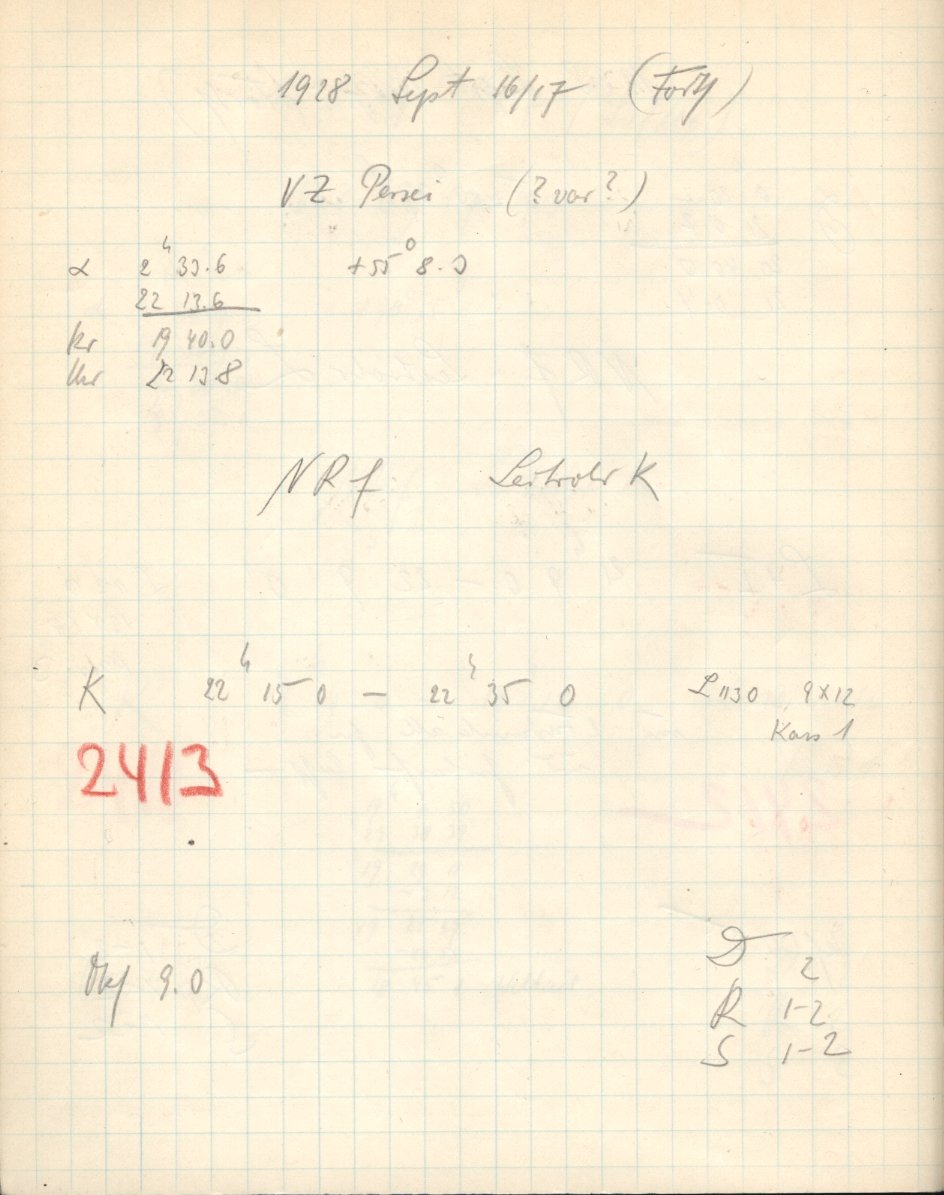 1928 Sept 16/17 (Forts)
VZ Persei (? var?)
α 2h 33.6 +55° 8.0
22 13.6
kr 19 40.0
Uhr 22 13.8
NRf Leitrohr K
K 22h 15 0 — 22h 35 0 L 1130 9x12
Kass 1
2413
Okf 9.0
D 2
R 1-2
S 1-2